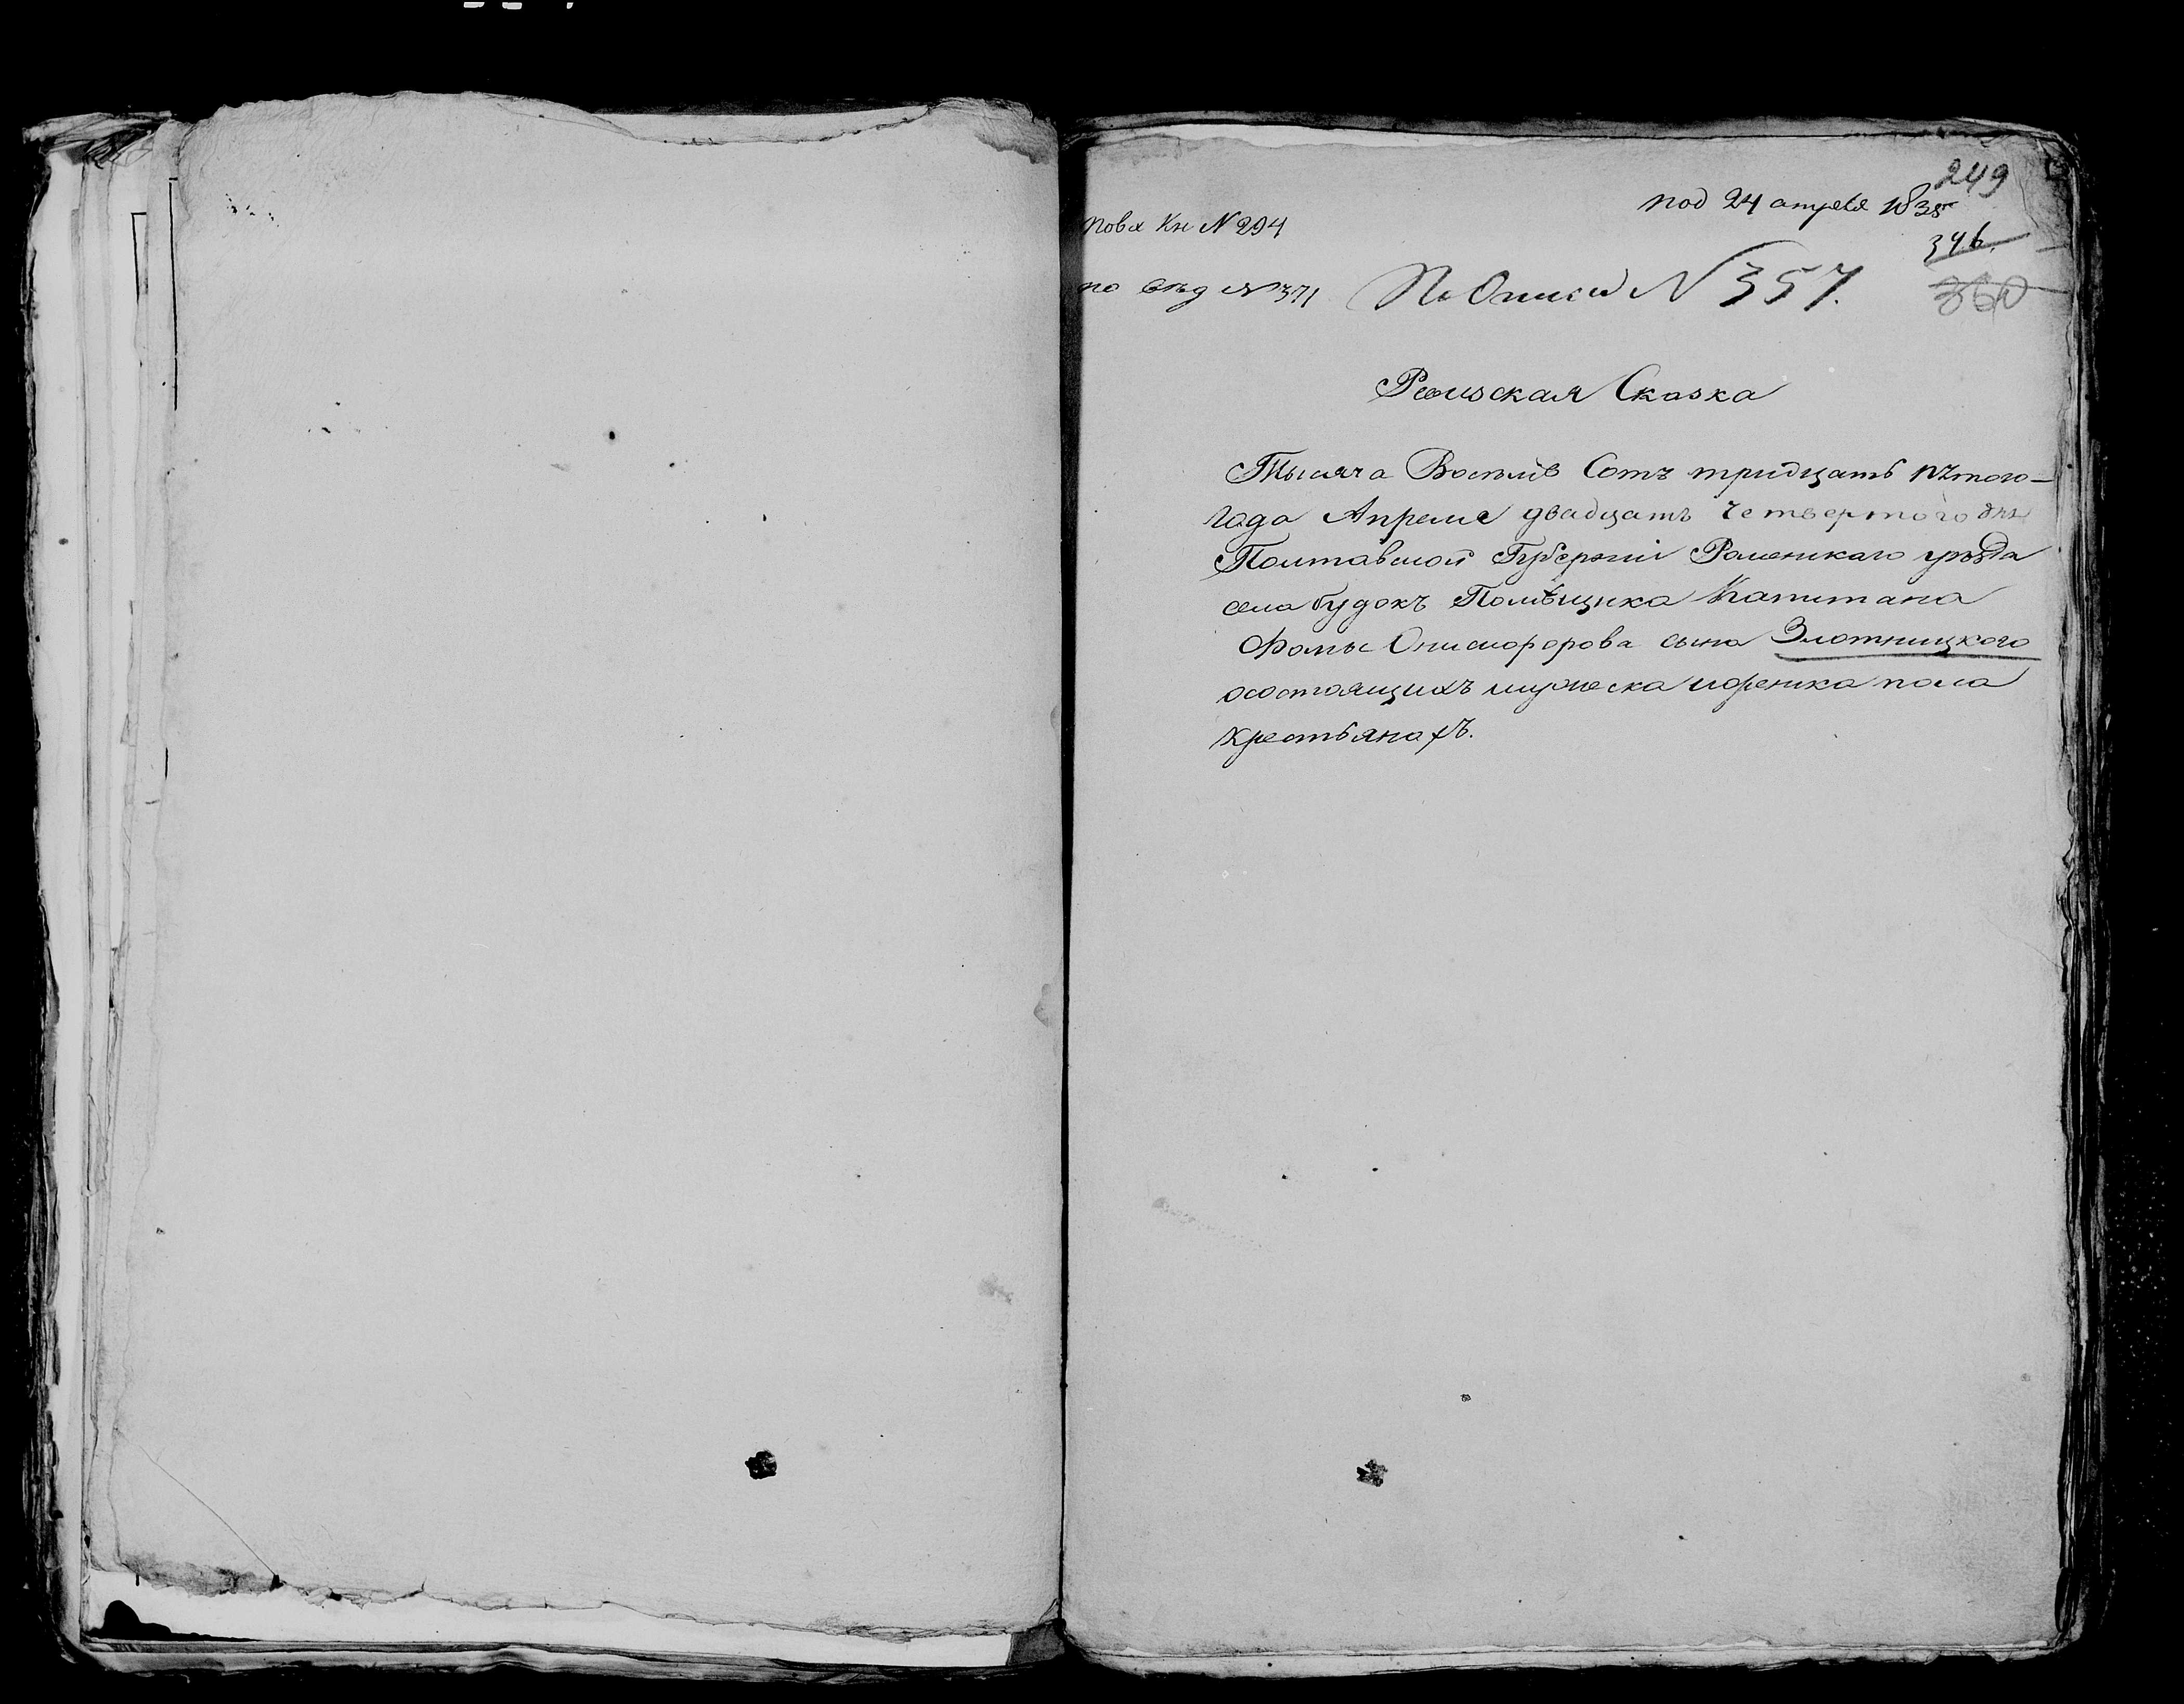 249
под 24 апреля 1835г
по вх Кн № 294
346.
по вѣд № 371 По Описи № 357. 360
Ревизская Сказка
Тысяча Восемь Сотъ тридцать пятого
года Апреля двадцать четвертого дня
Полтавской Губерніи Роменскаго уѣзда
села будокъ Помѣщика Капитана
Фомы Онисифорова сына Злотницкого
осостоящихъ мужеска иженска пола
крестьянахъ.